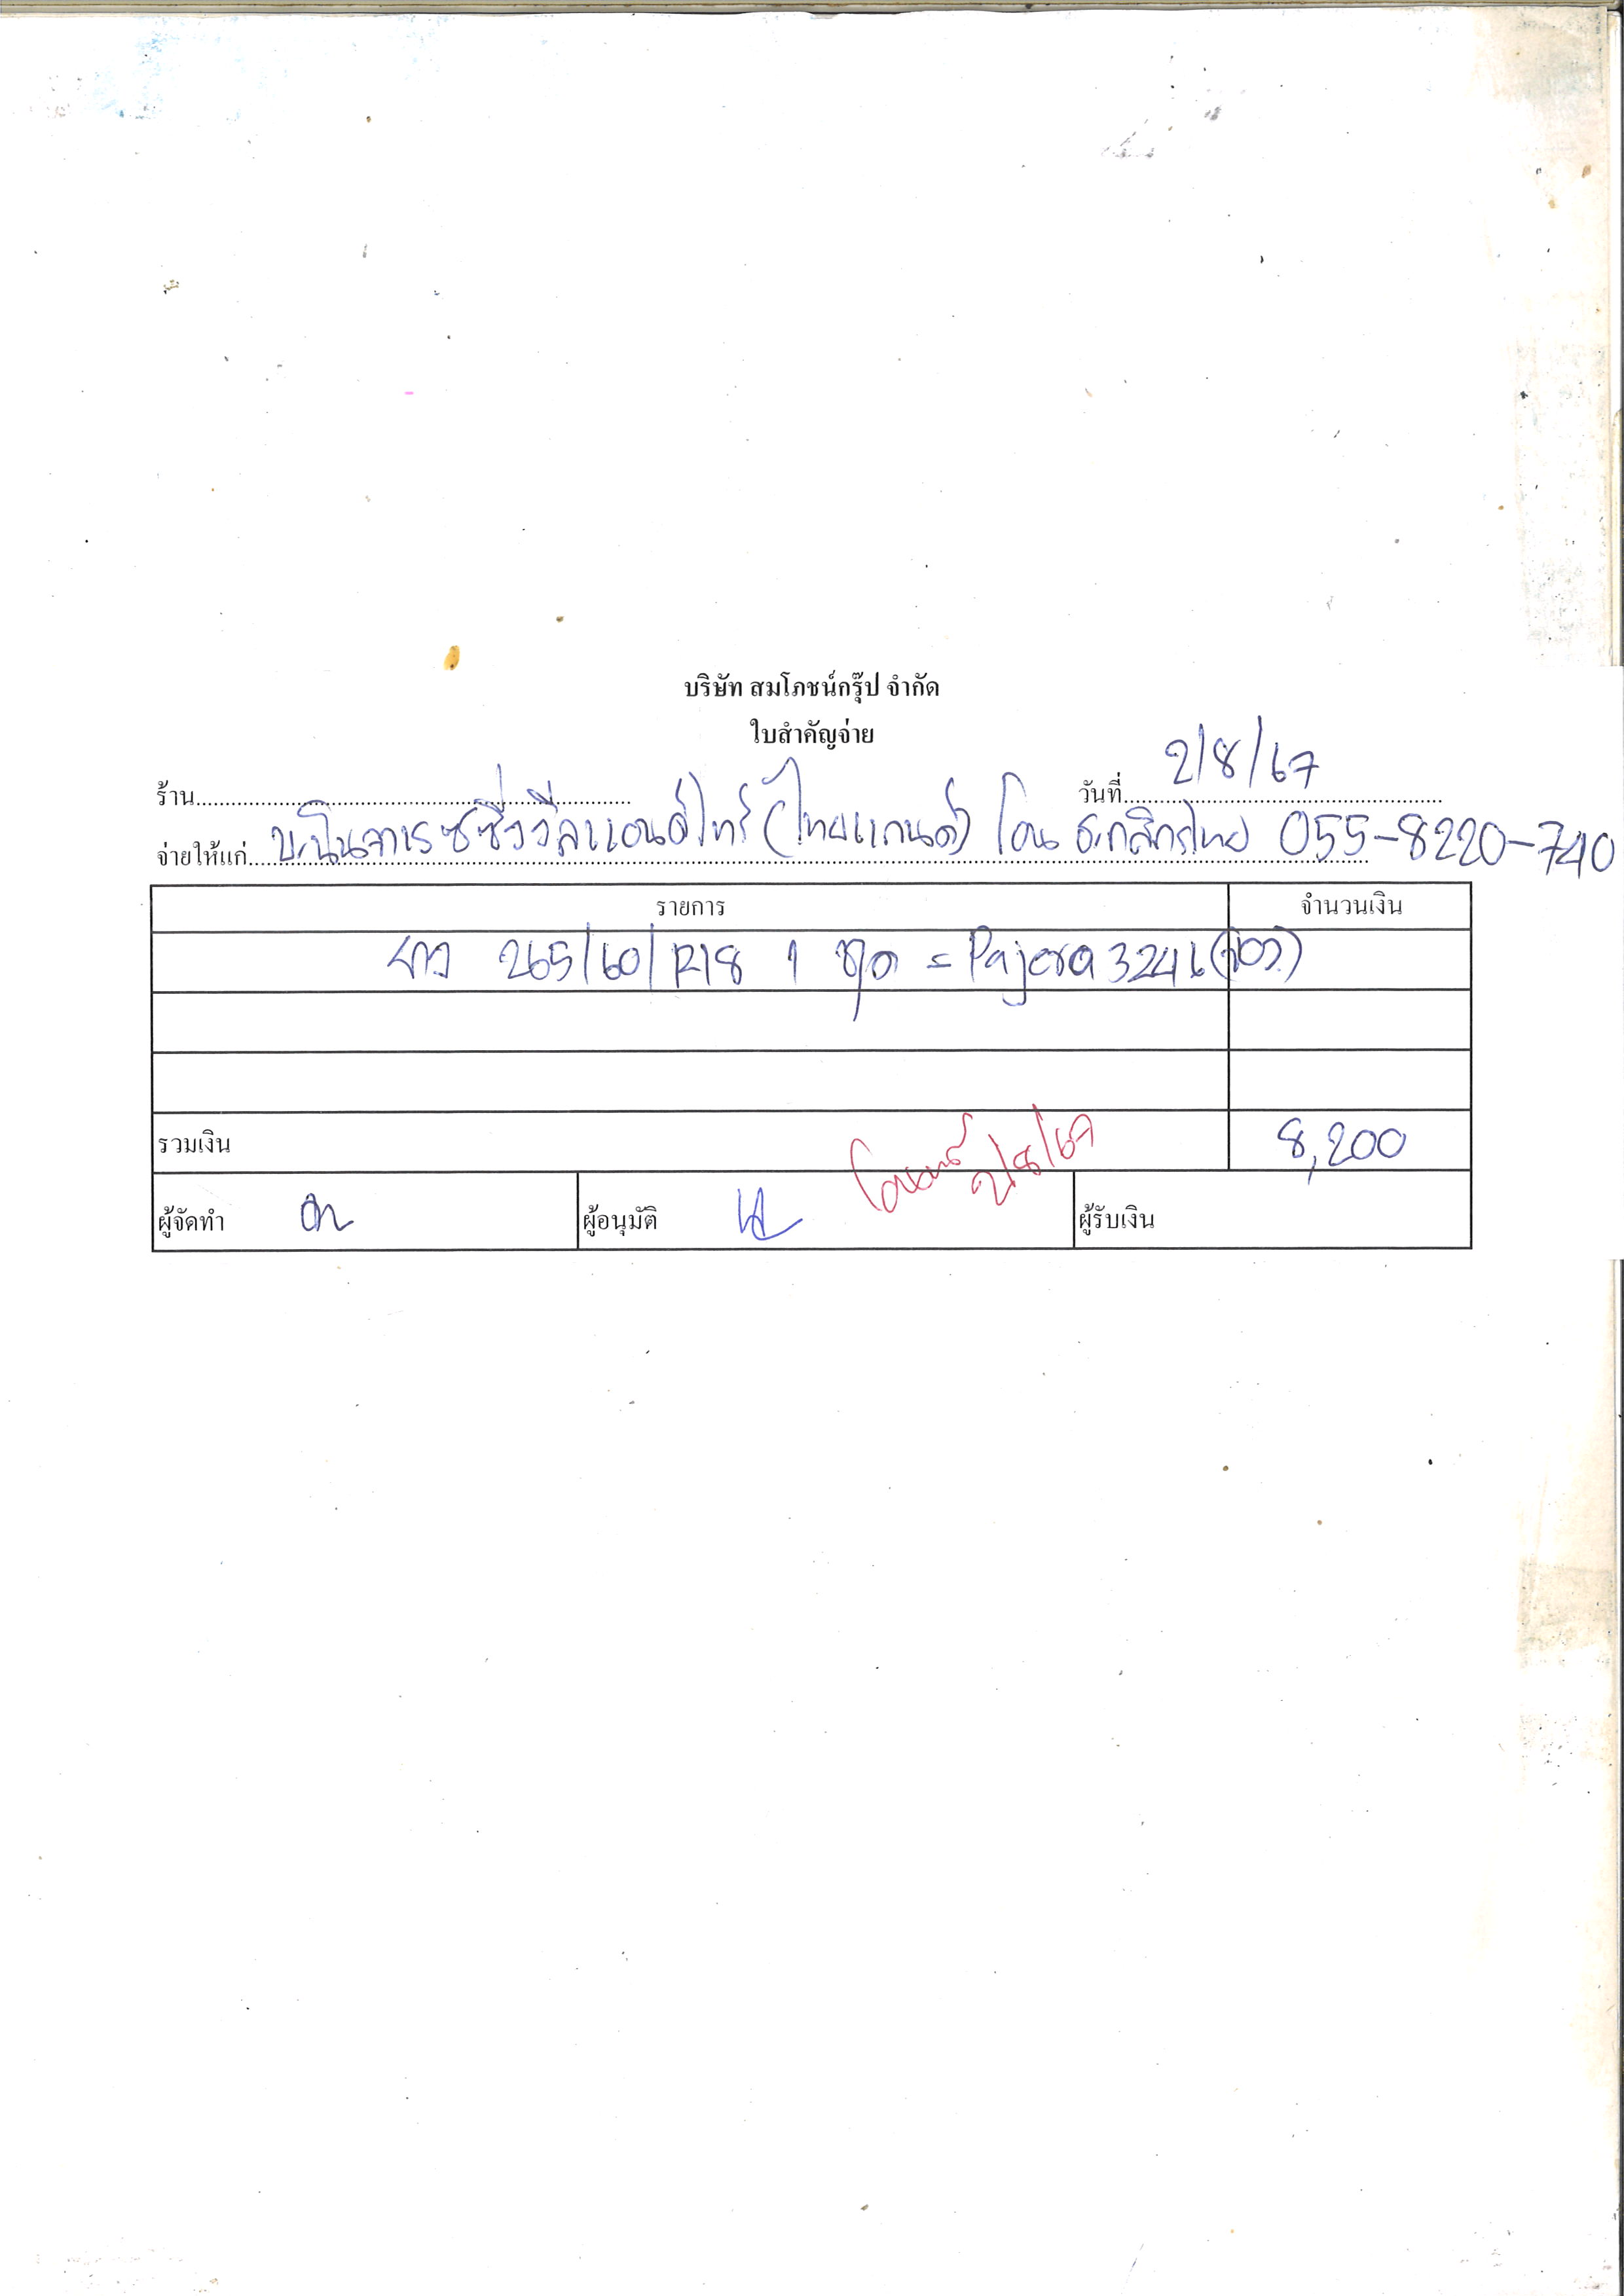 บริษัท สมโภชน์กรุ๊ป จำกัด
ใบสำคัญจ่าย
ร้าน วันที่ 2/8/67
จ่ายให้แก่ วีลแอนด์ไทร์ (ไทยแลนด์) โอน ธ.กสิกรไทย 055-8220-740
รายการ จำนวนเงิน
ยาง 265/60/R18 1 ชุด = Pajero 3246
รวมเงิน 8,200
โอนแล้ว 2/8/67
ผู้จัดทำ ผู้อนุมัติ ผู้รับเงิน